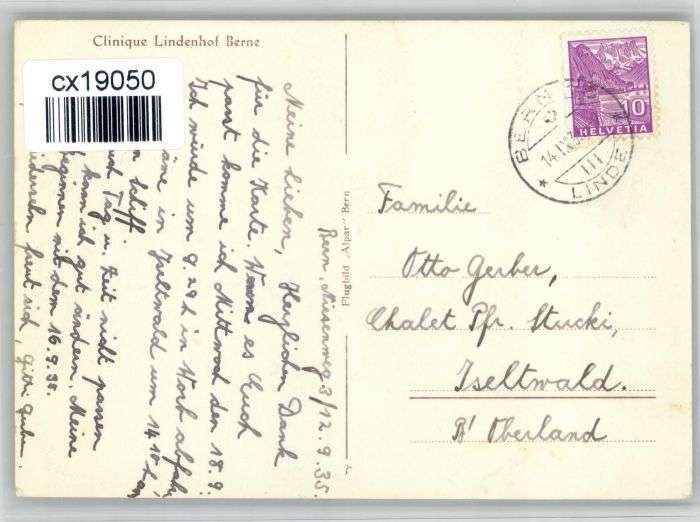 Clinique Lindenhof Berne
cx19050
Bern, 3/12.9.35.
Meine Lieben, Herzlichen Dank
für die Karte. Wenn es Euch
passt komme ich Mittwoch den 18.9.
Ich würde um 9.29 h in Worb abfah
in Iseltwald um 14.10
Schiff.
Tag u. Zeit nicht passen
kann ich gut ändern. Meine
beginnen mit dem 16.9.35.
freut sich,
Flugbild "Alpar" Bern
HELVETIA
10
BERN
14.IX.3
III
LINDE
Familie
Otto Gerber,
Chalet Pfr. Stucki,
Iseltwald.
B' Oberland